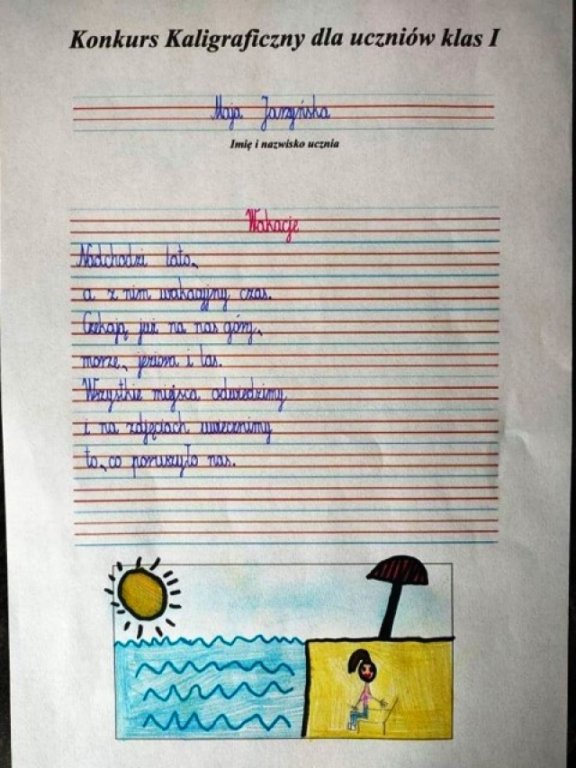 Konkurs Kaligraficzny dla uczniów klas I
Maja Jarzyńska
Imię i nazwisko ucznia
Wakacje
Nadchodzi lato,
a z nim wakacyjny czas.
Czekają już na nas góry,
morze, jeziora i las.
Wszystkie miejsca odwiedzimy
i na zdjęciach uwiecznimy
to, co poruszyło nas.